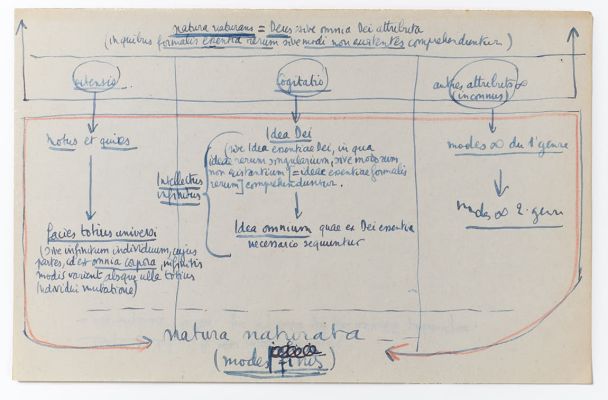 natura naturans = Deus sive omnia Dei attributa
(in quibus formalis essentia rerum sive modi non existentes comprehenduntur)
extensio
Cogitatio
autres attributs ∞
(inconnus)
Motus et quies
Idea Dei
(sive Idea essentiae Dei, in qua
ideae rerum singularium, sive modorum
non existentium [= ideae essentiae formalis
rerum] comprehenduntur.
Intellectus
infinitus
modes ∞ du 1er genre
Idea omnium quae ex Dei essentia
necessario sequuntur
modes ∞ 2e genre
facies totius universi
(sive infinitum individuum, cujus
partes, id est omnia corpora, infinitis
modis variant absque ulla totius
individui mutatione)
natura naturata
(modes finis)